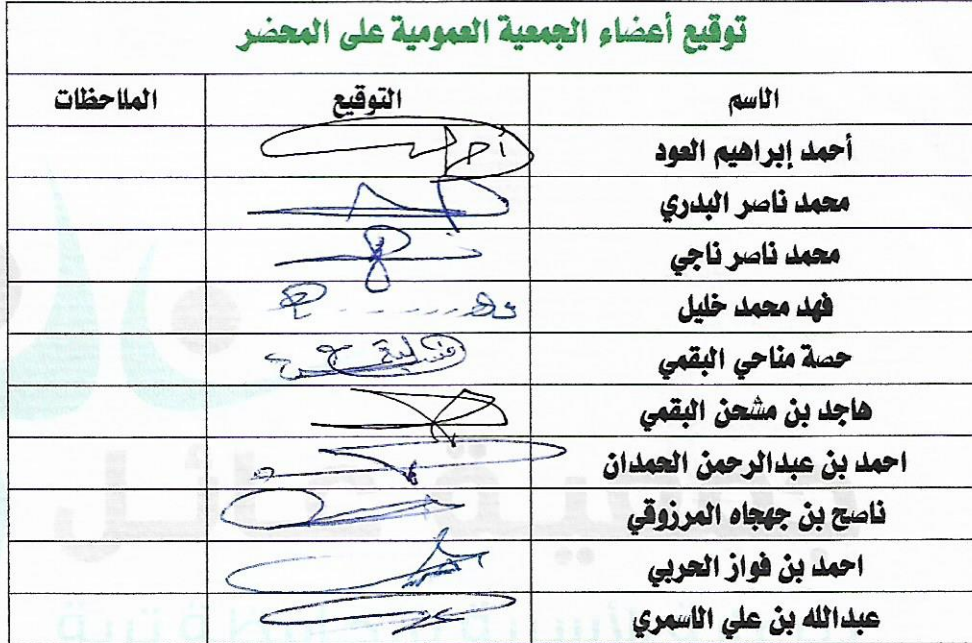 توقيع أعضاء الجمعية العمومية على المحضر
الاسم التوقيع الملاحظات
أحمد إبراهيم العود
محمد ناصر البدري
محمد ناصر ناجي
فهد محمد خليل
حصة مناحي البقمي
هاجد بن مشحن البقمي
احمد بن عبدالرحمن الحمدان
ناصح بن جهجاه المرزوقي
احمد بن فواز الحربي
عبدالله بن علي الاسمري